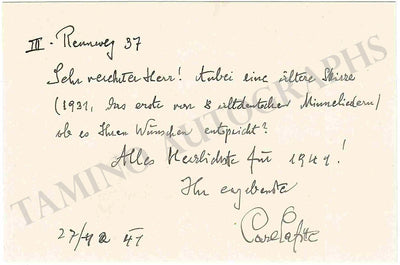 III. Rennweg 37
Sehr verehrter Herr! Anbei eine ältere Skizze
(1931, das erste von 8 altdeutschen Minneliedern)
ob es Ihren Wünschen entspricht?
Alles Herzlichste für 1941!
Ihr ergebenster
27/12 41
Carl Lafite
TAMINO AUTOGRAPHS